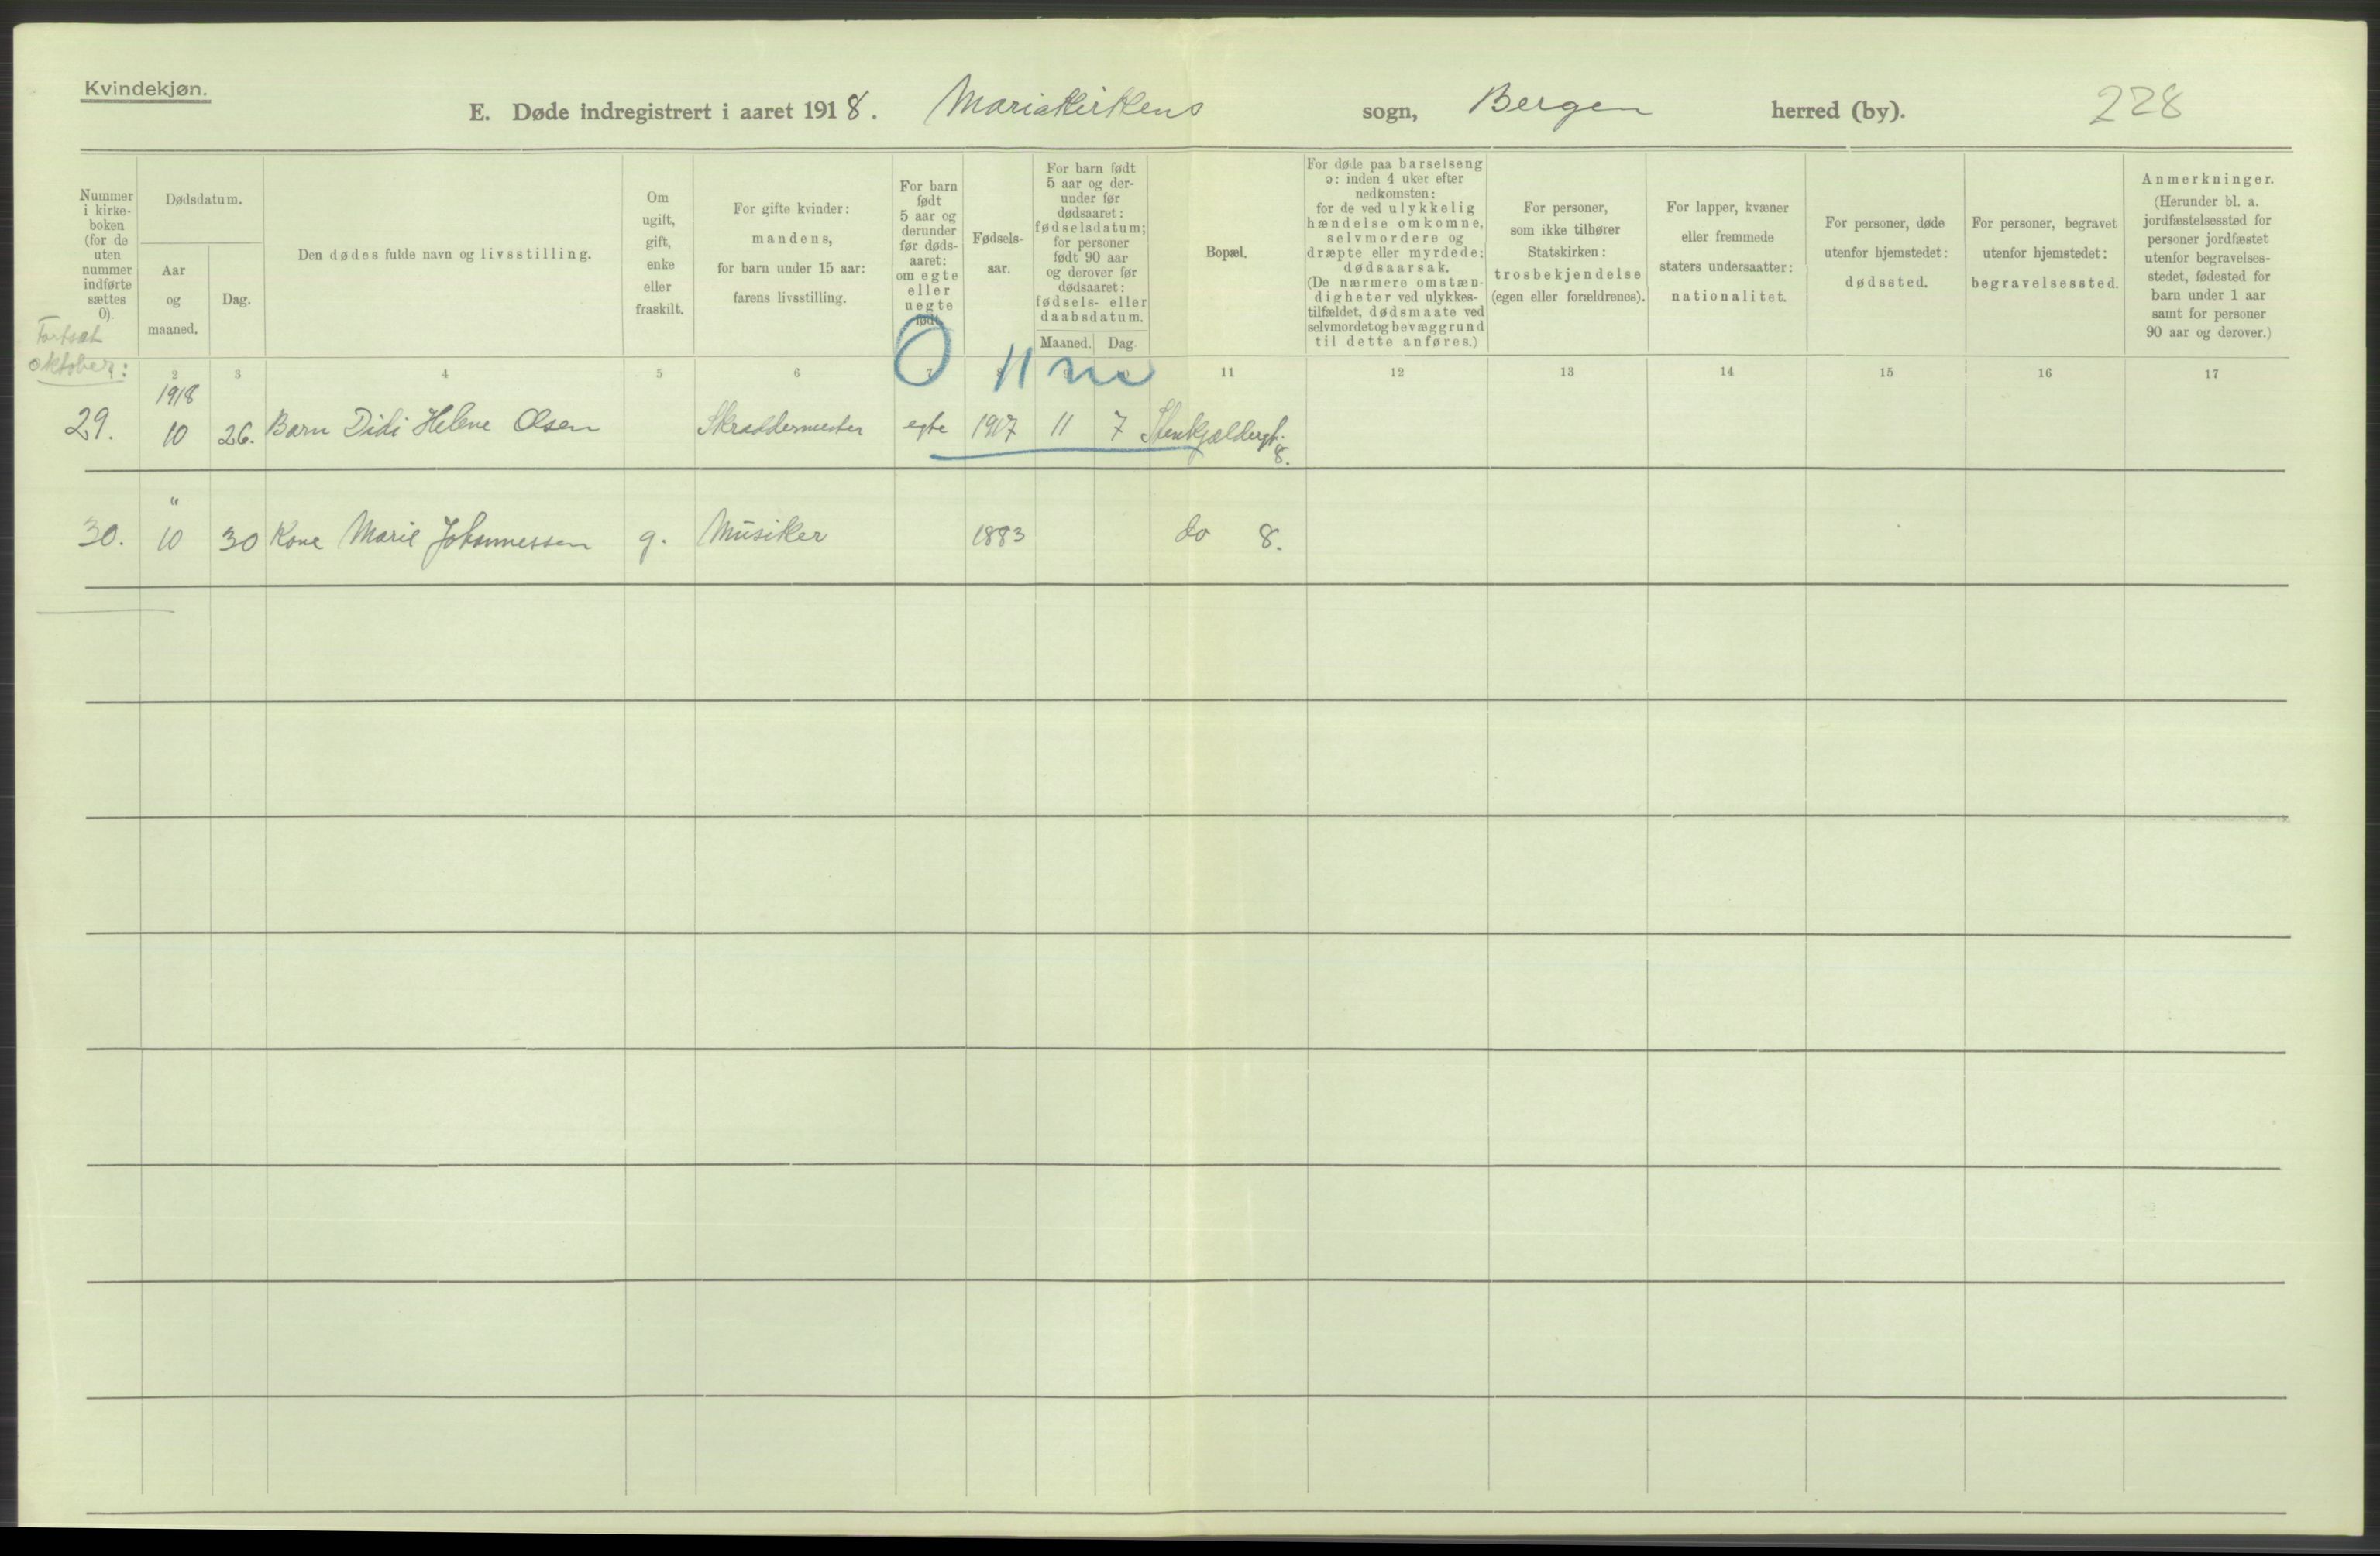 Kvindekjøn.
E. Døde indregistrert i aaret 1918. Mariakirkens sogn, Bergen herred (by). 228
Nummer i kirke- boken (for de uten nummer indførte sættes 0).
Dødsdatum.
Aar og maaned.
Dag.
Den dødes fulde navn og livsstilling.
Om ugift, gift, enke eller fraskilt.
For gifte kvinder: mandens, for barn under 15 aar: farens livsstilling.
For barn født 5 aar og derunder før døds- aaret: om egte eller uegte født
Fødsels- aar.
For barn født 5 aar og der- under før dødsaaret: fødselsdatum; for personer født 90 aar og derover før dødsaaret: fødsels- eller daabsdatum.
Maaned. Dag.
Bopæl.
For døde paa barselseng ɔ: inden 4 uker efter nedkomsten: for de ved ulykkelig hændelse omkomne, selvmordere og dræpte eller myrdede: dødsaarsak. (De nærmere omstæn- digheter ved ulykkes- tilfældet, dødsmaate ved selvmordet og bevæggrund til dette anføres.)
For personer, som ikke tilhører Statskirken: trosbekjendelse (egen eller forældrenes).
For lapper, kvæner eller fremmede staters undersaatter: nationalitet.
For personer, døde utenfor hjemstedet: dødssted.
For personer, begravet utenfor hjemstedet: begravelsessted.
Anmerkninger. (Herunder bl. a. jordfæstelsessted for personer jordfæstet utenfor begravelses- stedet, fødested for barn under 1 aar samt for personer 90 aar og derover.)
Fortsat
oktober:
2 3 4 5 6 7 8 11 12 13 14 15 16 17
0 11
1918
29. 10 26. Barn Didi Helene Olsen Skræddermester egte 1907 11 7 Stenkjældergt. 8.
"
30. 10 30 Kone Marie Johannessen g. Musiker 1883 do 8.